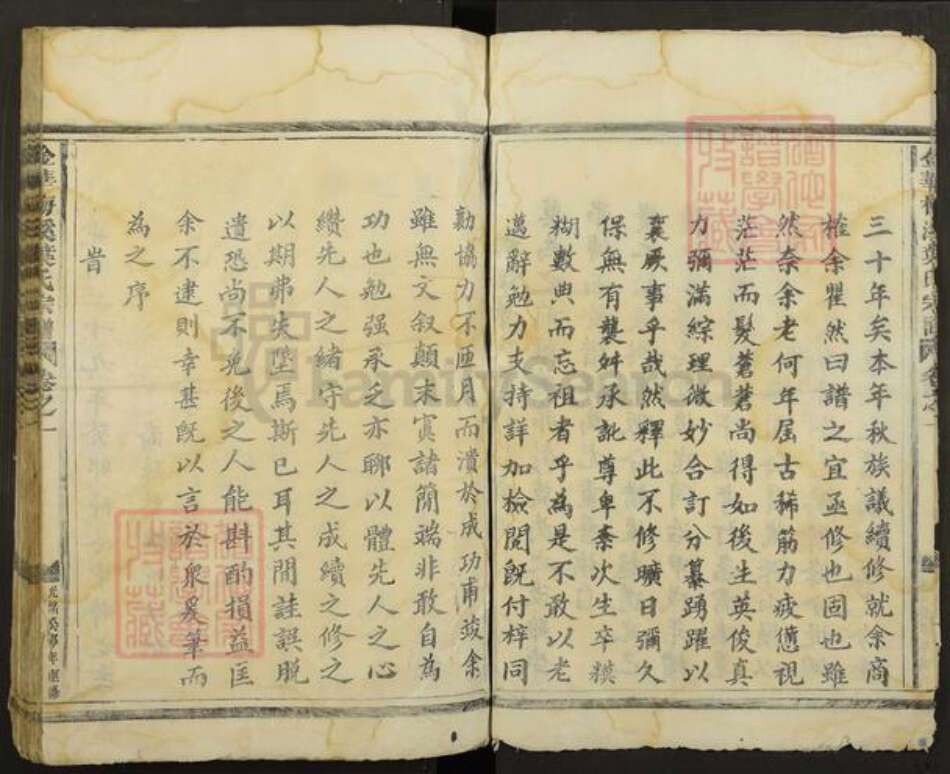 三十年矣本年秋族議續修就余商
榷余瞿然曰譜之宜亟修也固也雖
然奈余老何年屆古稀筋力疲憊視
茫茫而髮蒼蒼尚得如後生英俊真
力彌滿綜理微妙合訂分纂踴躍以
襄厥事乎哉然釋此不修曠日彌久
保無有襲舛承訛尊卑紊次生卒糢
糊數典而忘祖者乎為是不敢以老
邁辭勉力支持詳加檢閱旣付梓同
勷協力不匝月而潰於成功甫竣余
雖無文叙顛末寘諸簡端非敢自為
功也勉强承乏亦聊以體先人之心
纘先人之緒守先人之成續之修之
以期弗失墜焉斯已耳其間詿誤脫
遺恐尚不免後之人能斟酌損益匡
余不逮則幸甚旣以言於衆爰筆而
為之序
旹
金華梅溪葉氏宗譜 卷之一
FamilySearch